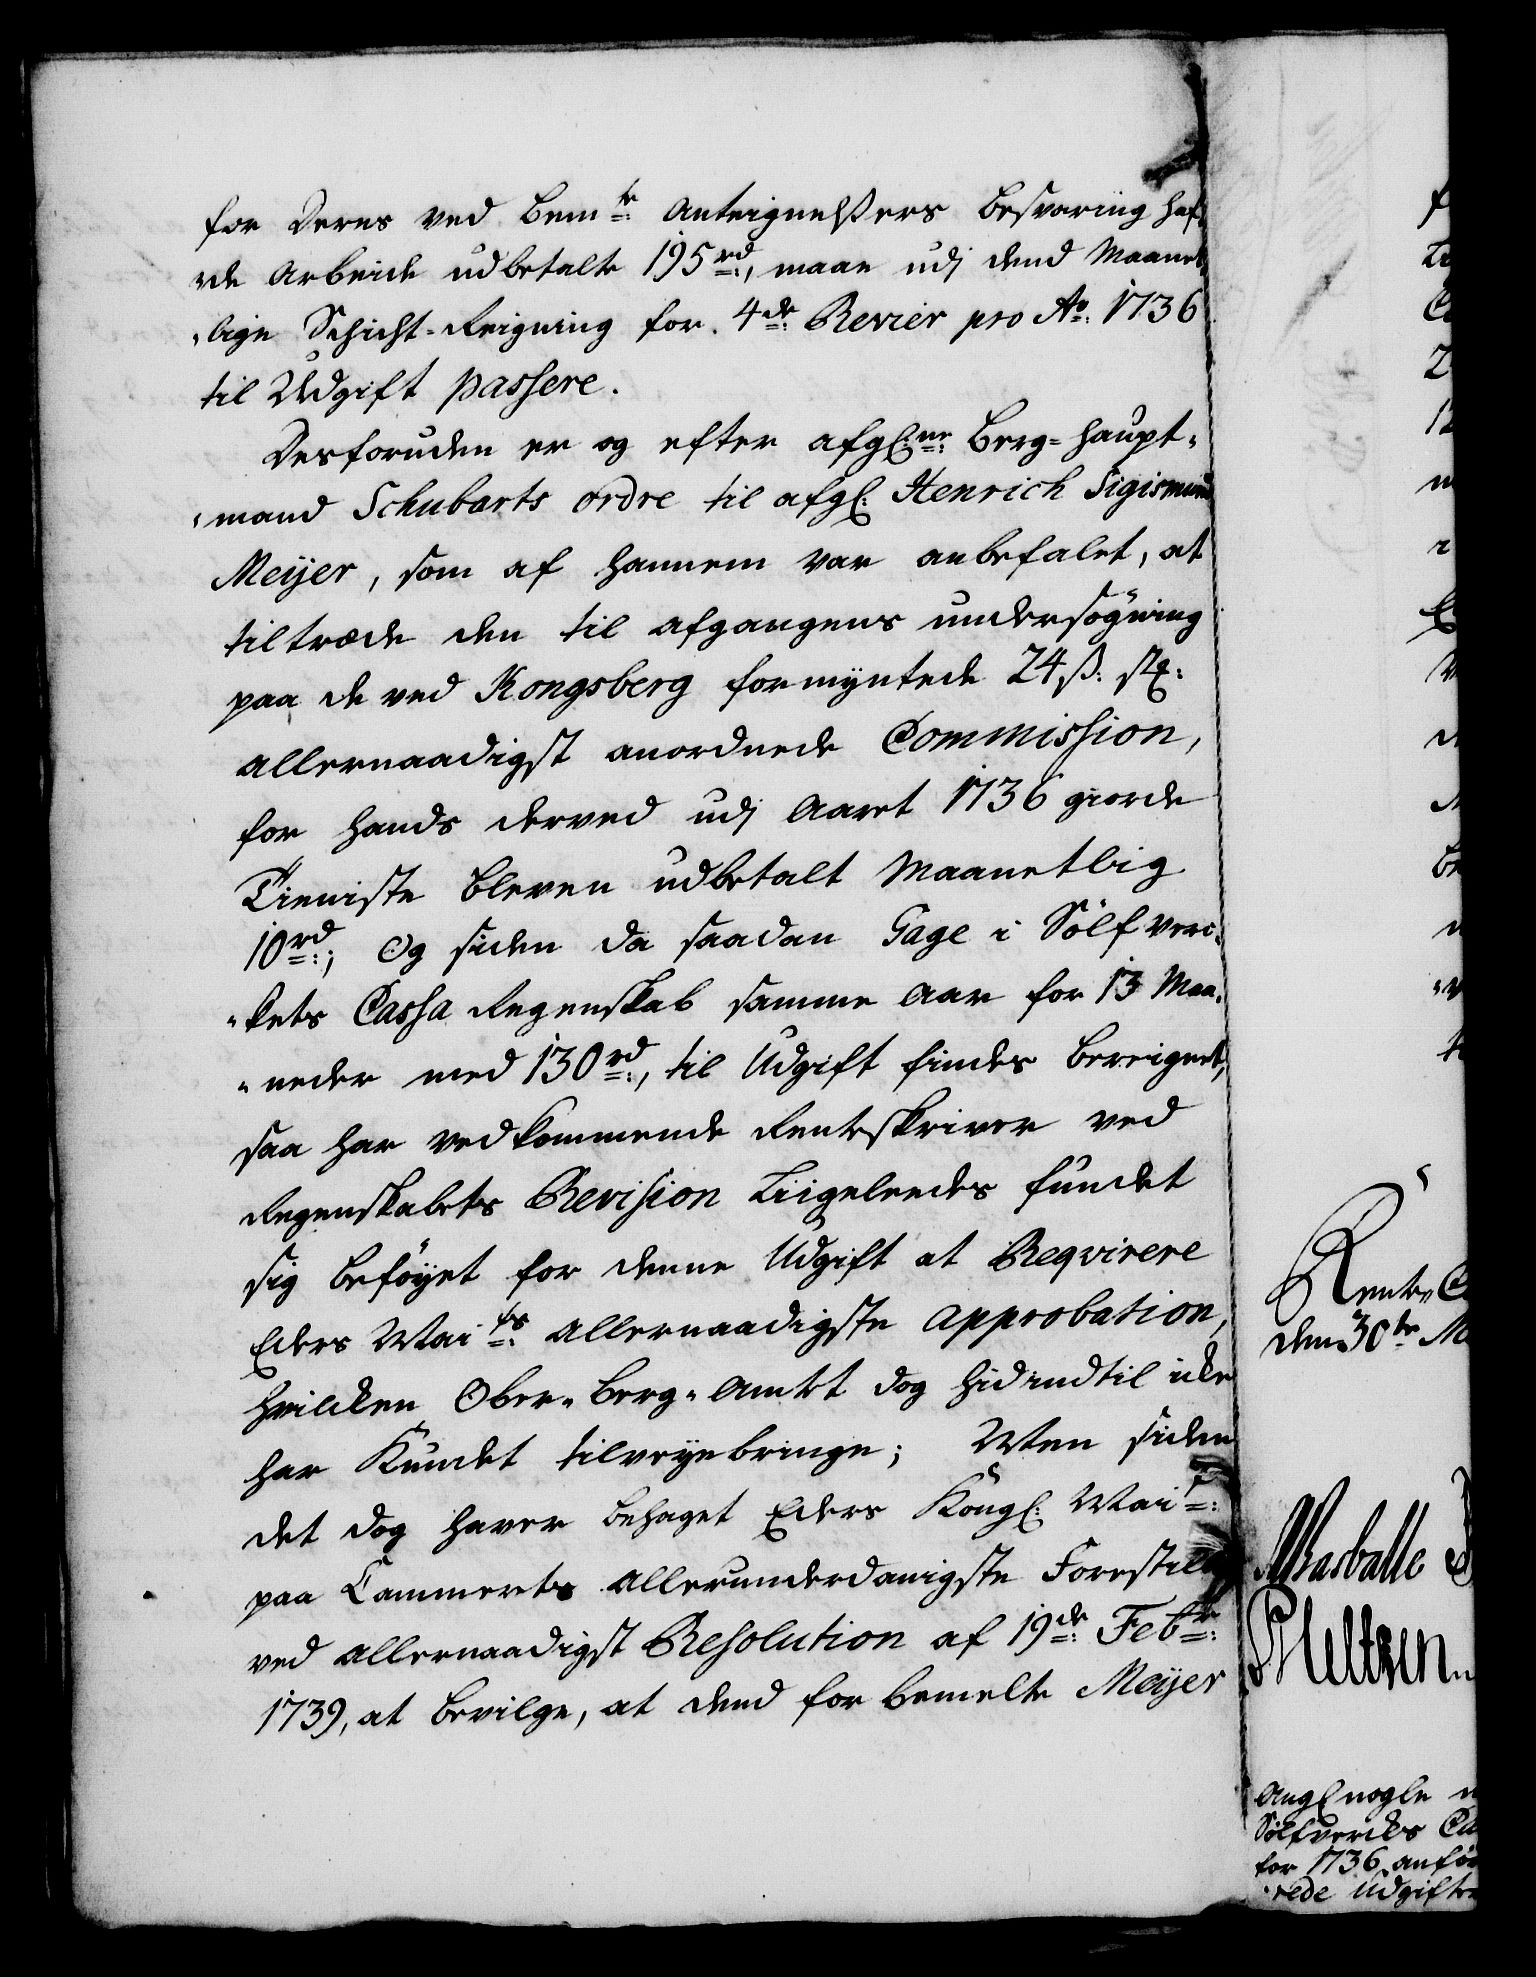 for deres ved bem:te Antegnelsers besvaring haf-
de Arbeide udbetalte 195 rd:, maae udj dend Maanet-
lige Schicht-Reigning for 4de Revier pro Ao: 1736
til Udgift passere.
Desforuden er og efter afgl:ne Berg-haupt-
mand Schubarts ordre til afgl: Henrich Sigismund
Meijer, som af hannem var anbefalet, at
tiltræde den til afgangens undersøgning
paa de ved Kongsberg formyntede 24 ß: st:
allernaadigst anordnede Commission,
for hands derved udj Aaret 1736 giorde
Tieniste bleven udbetalt Maanetlig
10 rd:; Og siden da saadan Gage i Sölfver-
kets Cassa Regenskab samme Aar for 13 Maa-
neder med 130 rd:, til Udgift findes bereignet,
saa har vedkommende Renteskriver ved
Regenskabets Revision liigeleedes fundet
sig beföyet for denne Udgift at Reqvirere
Eders Mai:ts allernaadigste approbation,
hvilcken Ober-Berg-Amtet dog hidindtil icke
har kundet tilveyebringe; Men siden
det dog haver behaget Eders Kongl: Mai:t
paa Cammerets allerunderdanigste Forestill:
ved allernaadigst Resolution af 19de Febr:
1739, at bevilge, at dend for bemelte Meijer
Rente C
den 30te M
Angl nogle
Sölfverckes Ca
for 1736 anfö
rede Udgifter